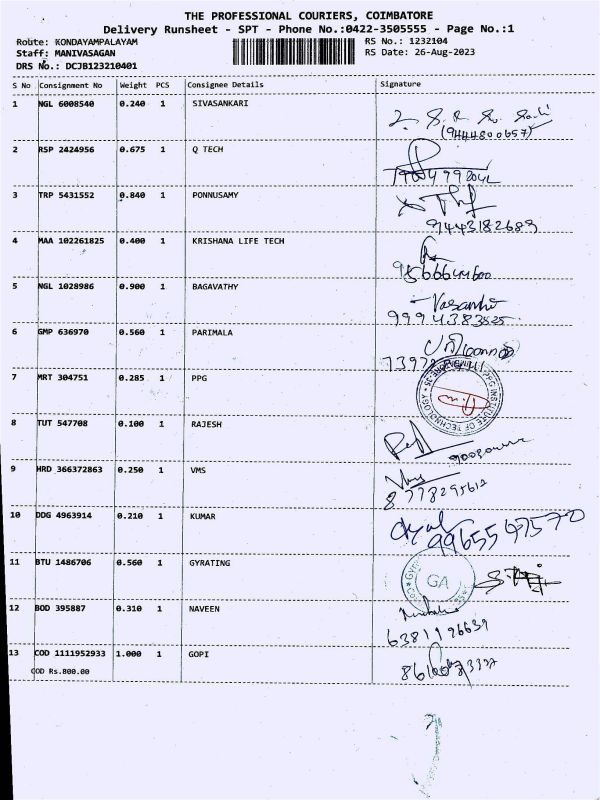 THE PROFESSIONAL COURIERS, COIMBATORE
Delivery Runsheet - SPT - Phone No.:0422-3505555 - Page No.:1
Route: KONDAYAMPALAYAM RS No.: 1232104
Staff: MANIVASAGAN RS Date: 26-Aug-2023
DRS No.: DCJB123210401
S No Consignment No Weight PCS Consignee Details Signature
1 NGL 6008540 0.240 1 SIVASANKARI
(9444800657)
2 RSP 2424956 0.675 1 Q TECH
3 TRP 5431552 0.840 1 PONNUSAMY
9443182689
4 MAA 102261825 0.400 1 KRISHANA LIFE TECH
5 NGL 1028986 0.900 1 BAGAVATHY
Vasanthi
9994383525
6 GMP 636970 0.560 1 PARIMALA
7 MRT 304751 0.285 1 PPG
PPG INSTITUTE OF TECHNOLOGY
8 TUT 547708 0.100 1 RAJESH
9 HRD 366372863 0.250 1 VMS
Vms
8778295612
10 DDG 4963914 0.210 1 KUMAR
9965597570
11 BTU 1486706 0.560 1 GYRATING
GA
12 BOD 395887 0.310 1 NAVEEN
6381196639
13 COD 1111952933 1.000 1 GOPI
COD Rs.800.00